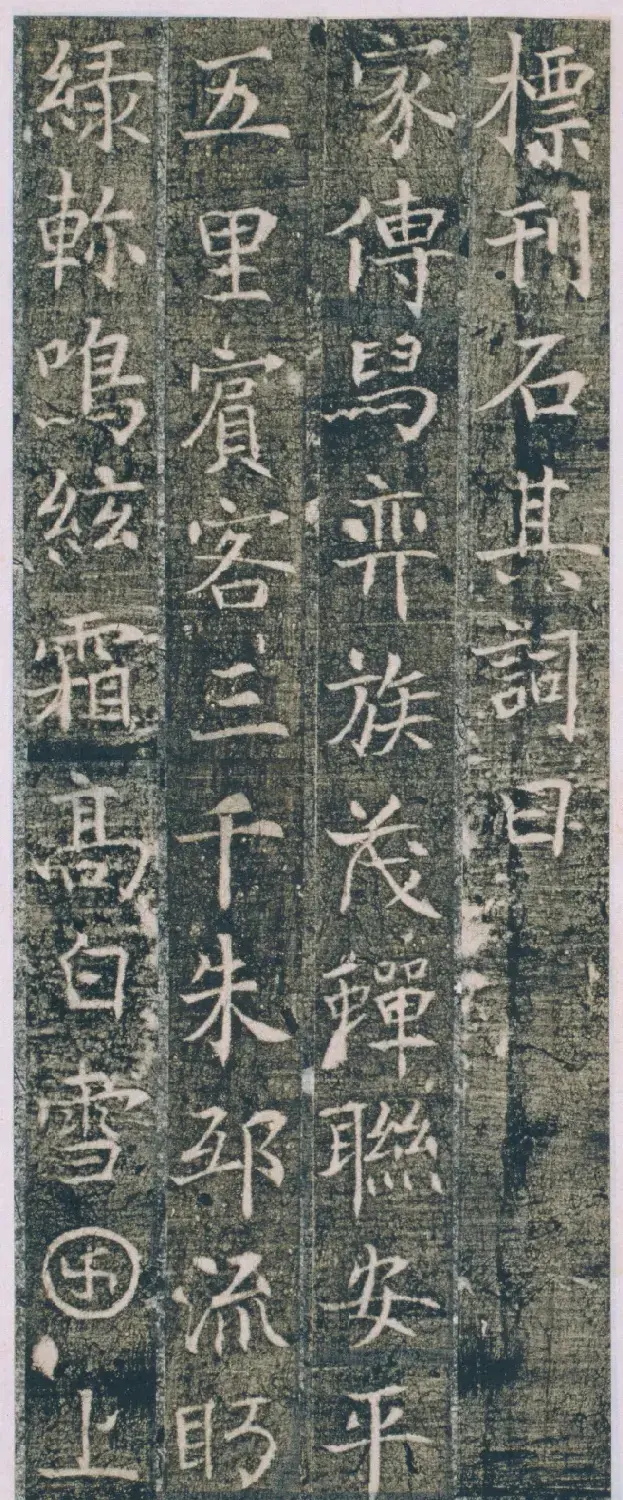 標刊石其詞曰
家傳舄弈族茂蟬聯安平
五里賓客三千朱邸流眄
綠軫鳴絃霜高白雪上